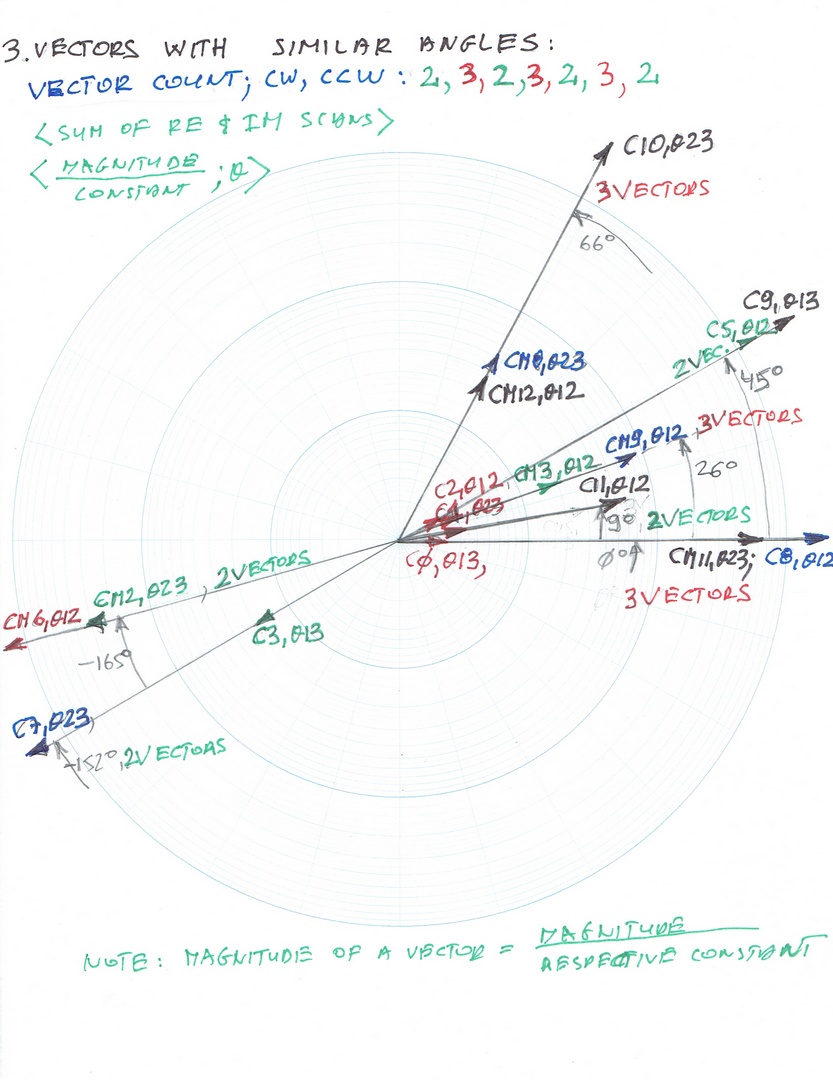 3. VECTORS WITH SIMILAR ANGLES:
VECTOR COUNT; CW, CCW : 2, 3, 2, 3, 2, 3, 2
<SUM OF RE & IM SCANS>
<MAGNITUDE
CONSTANT ; θ>
C10, θ23
3 VECTORS
66°
C9, θ13
C5, θ12
2 VEC.
45°
CM8, θ23
CM12, θ12
3 VECTORS
CM9, θ12
CM3, θ12
26°
C2, θ12
C11, θ12
θ23
9°
2 VECTORS
Cφ, θ13,
φ°
CM11, θ23; C8, θ12
3 VECTORS
CM2, θ23, 2 VECTORS
CM6, θ12
C3, θ13
-165°
C7, θ23,
-152°, 2 VECTORS
NOTE: MAGNITUDE OF A VECTOR = MAGNITUDE
RESPECTIVE CONSTANT